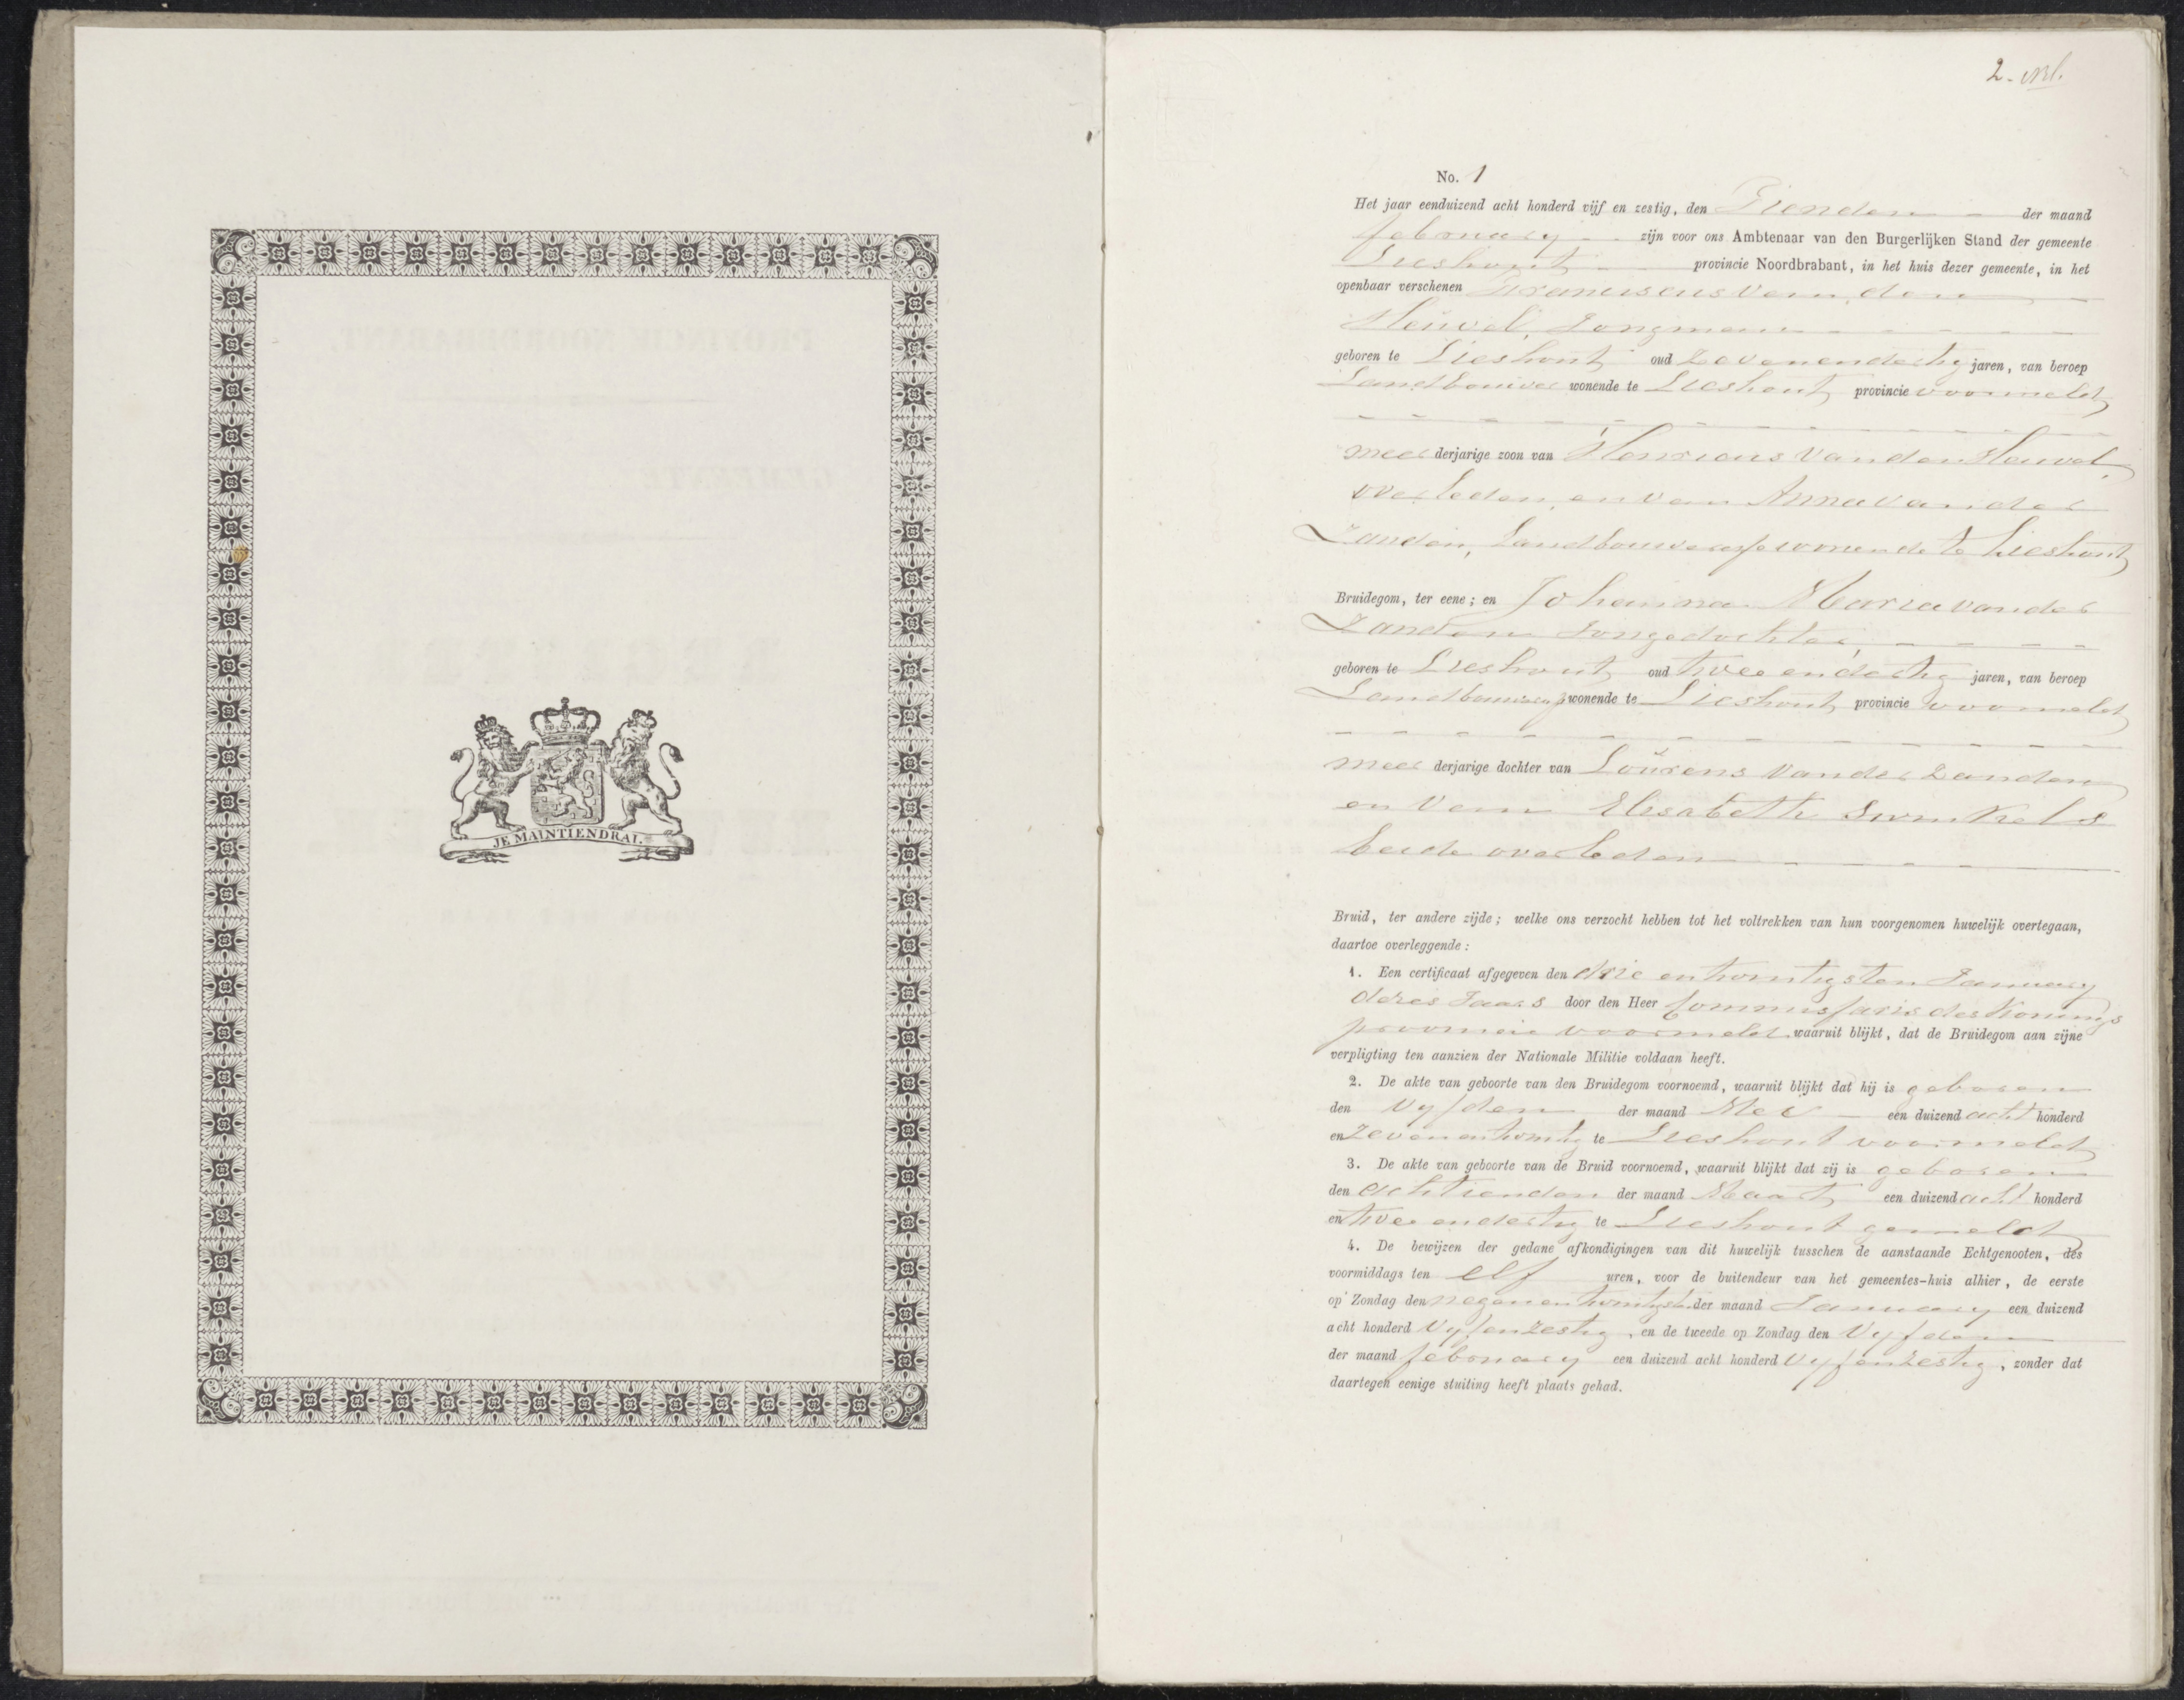 JE MAINTIENDRAI.
2.
No. 1
Het jaar eenduizend acht honderd vijf en zestig, den Tienden der maand
februarij zijn voor ons Ambtenaar van den Burgerlijken Stand der gemeente
Lieshout provincie Noordbrabant, in het huis dezer gemeente, in het
openbaar verschenen Franciscus van den
Heuvel, Jongman
geboren te Lieshout oud Zevenendertig jaren, van beroep
Landbouwer wonende te Lieshout provincie voormeldt
meerderjarige zoon van Henricus van den Heuvel,
overleden, en van Anna van der
Zanden, Landbouweresse wonende te Lieshout
Bruidegom, ter eene; en Johanna Maria van der
Zanden Jongedochter,
geboren te Lieshout oud twee endertig jaren, van beroep
Landbouweresse wonende te Lieshout provincie voormeldt
meerderjarige dochter van Lourens van der Zanden
en van Elisabeth Swinkels
beide overleden
Bruid, ter andere zijde; welke ons verzocht hebben tot het voltrekken van hun voorgenomen huwelijk overtegaan,
daartoe overleggende:
1. Een certificaat afgegeven den drie entwintigsten January
dezes Jaars door den Heer Commissaris des Konings
provincie voormeldt waaruit blijkt, dat de Bruidegom aan zijne
verpligting ten aanzien der Nationale Militie voldaan heeft.
2. De akte van geboorte van den Bruidegom voornoemd, waaruit blijkt dat hij is geboren
den Vyfden der maand Mei een duizend acht honderd
en Zevenentwintig te Lieshout voormeldt
3. De akte van geboorte van de Bruid voornoemd, waaruit blijkt dat zij is geboren
den achtienden der maand Maart een duizend acht honderd
en twee endertig te Lieshout gemeldt
4. De bewijzen der gedane afkondigingen van dit huwelijk tusschen de aanstaande Echtgenooten, des
voormiddags ten elf uren, voor de buitendeur van het gemeentes-huis alhier, de eerste
op Zondag den negenentwintigst. der maand January een duizend
acht honderd Vyfenzestig, en de tweede op Zondag den Vyfden
der maand februarij een duizend acht honderd Vyfenzestig, zonder dat
daartegen eenige stuiting heeft plaats gehad.